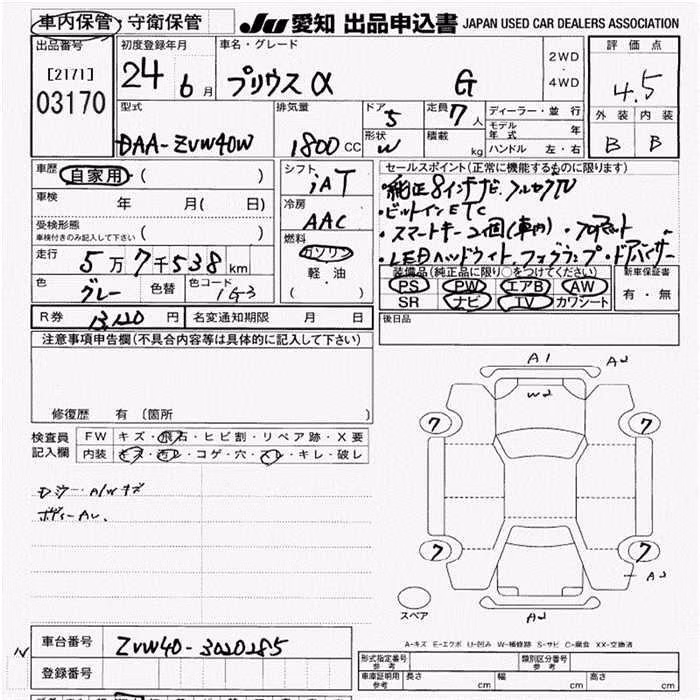 車内保管・守衛保管 JU 愛知 出品申込書 JAPAN USED CAR DEALERS ASSOCIATION
出品番号 初度登録年月 車名・グレード 2WD・4WD 評価点
[2171] 03170 24 6月 プリウスα G 4.5
型式 排気量 ドア 5 定員 7人 ディーラー・並行 外装 内装
モデル年式 年
DAA-ZVW40W 1800CC 形状 W 積載 kg ハンドル 左・右 B B
車歴 自家用・( ) シフト iAT セールスポイント(正常に機能するものに限ります)
・純正8インチナビ フルセグTV
車検 年 月( 日) 冷房 AAC ・ビルトインETC
受検形態 車検付きのみ記入して下さい ( ) 燃料 ガソリン 軽・油 ( )
・スマートキー2個(車内)・フロアマット
・LEDヘッドライト、フォグランプ・ドアバイザー
走行 5万7千538km
装備品(純正品に限り○をつけてください) 新車保証書
色 グレー 色替 色コード 1G3 PS PW エアB AW 有・無
SR ナビ TV カワシート
R券 13,120円 名変通知期限 月 日 後日品
注意事項申告欄(不具合内容等は具体的に記入して下さい)
修復歴 有 〔箇所 〕
検査員記入欄 FW キズ・飛石・ヒビ割・リペア跡・X要
内装 キズ・汚レ・コゲ・穴・スレ・キレ・破レ
A1
W2
7 7
7 7
スペア
A-キズ E-エクボ U-凹み W-補修跡 S-サビ C-腐食 XX-交換済
車台番号 ZVW40-3020285
登録番号
形式指定番号 参考 類別区分番号 参考
車庫証明用 参考 長さ cm 幅 cm 高さ cm